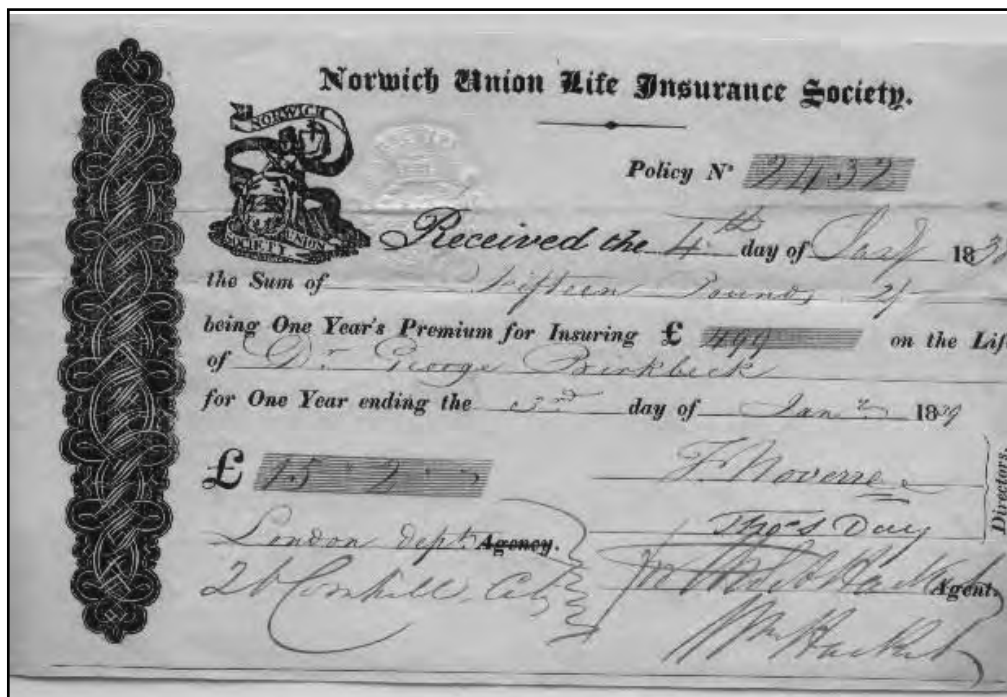 Norwich Union Life Insurance Society.
NORWICH
UNION
SOCIETY
Policy Nº 2432
Received the 4th day of Jany 18
the Sum of Fifteen Pounds 2/
being One Year's Premium for Insuring £ 499 on the Lif
of Dr George Birkbeck
for One Year ending the 3rd day of Jany 1839
£ 15 " 2 "
F. Noverre
Directors.
Thos Day
London Dept. Agency.
Cornhill, City
Agent.